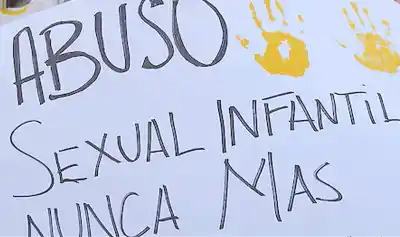 ABUSO
SEXUAL INFANTIL
NUNCA MAS